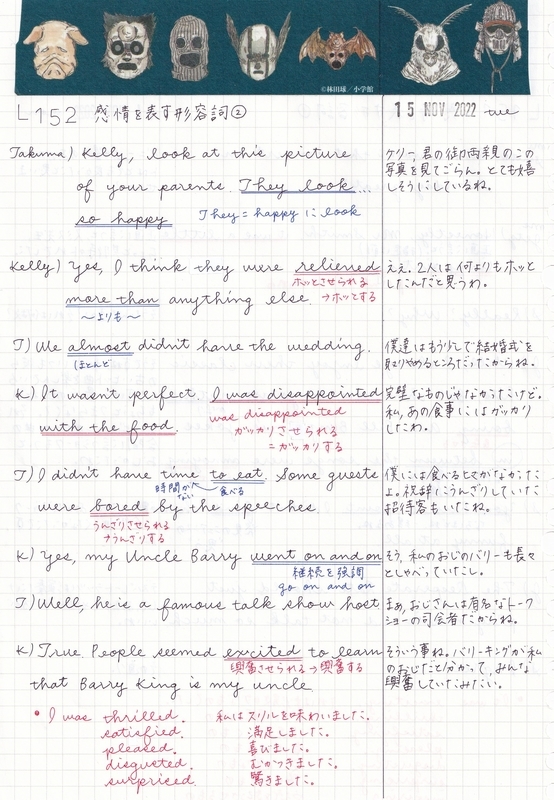 ©林田球／小学館
L152 感情を表す形容詞②
15 NOV 2022 tue
Takuma) Kelly, look at this picture
of your parents. They look...
so happy
They = happy に look
ケリー、君の御両親のこの
写真を見てごらん。とても嬉
しそうにしているね。
Kelly) Yes, I think they were relieved
ホッとさせられる
→ホッとする
more than anything else.
〜よりも〜
ええ。2人は何よりもホッと
したんだと思うわ。
T) We almost didn't have the wedding.
ほとんど
僕達はもう少しで結婚式を
取りやめるところだったからね。
K) It wasn't perfect. I was disappointed
with the food.
was disappointed
ガッカリさせられる
=ガッカリする
完璧なものじゃなかったけど。
私、あの食事にはガッカリ
したわ。
T) I didn't have time to eat. Some guests
時間がない
食べる
were bored by the speeches.
うんざりさせられる
→うんざりする
僕には食べるヒマがなかった
よ。祝辞にうんざりしていた
招待客もいたね。
K) Yes, my Uncle Barry went on and on
継続を強調
go on and on
そう、私のおじのバリーも長々
としゃべっていたし。
T) Well, he is a famous talk show host
まぁ、おじさんは有名なトーク
ショーの司会者だからね。
K) True. People seemed excited to learn
興奮させられる→興奮する
that Barry King is my uncle.
そういう事ね。バリーキングが私
のおじだと分かって、みんな
興奮していたみたい。
• I was thrilled. 私はスリルを味わいました。
satisfied. 満足しました。
pleased. 喜びました。
disgusted. むかつきました。
surprised. 驚きました。